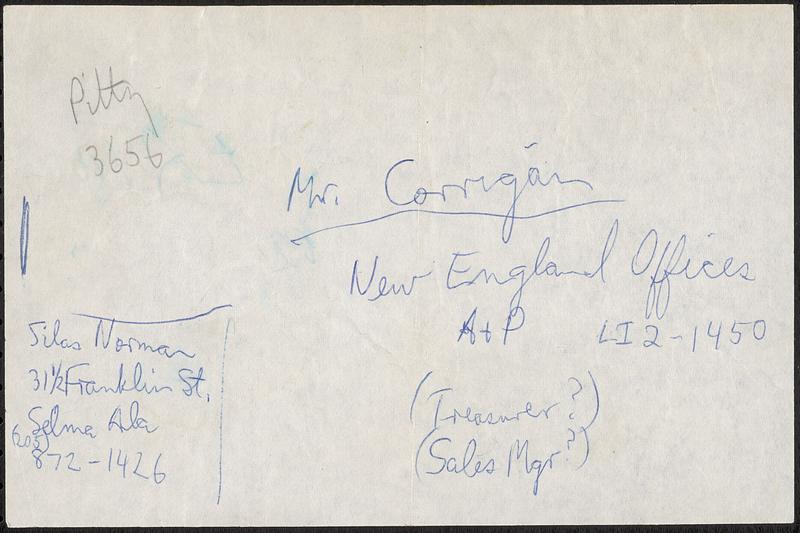 Pitty
3656
Mr. Corrigan
New England Offices
A+P LI 2-1450
(Treasurer?)
(Sales Mgr?)
Silas Norman
31½ Franklin St.
Selma Ala
(205)
872-1426